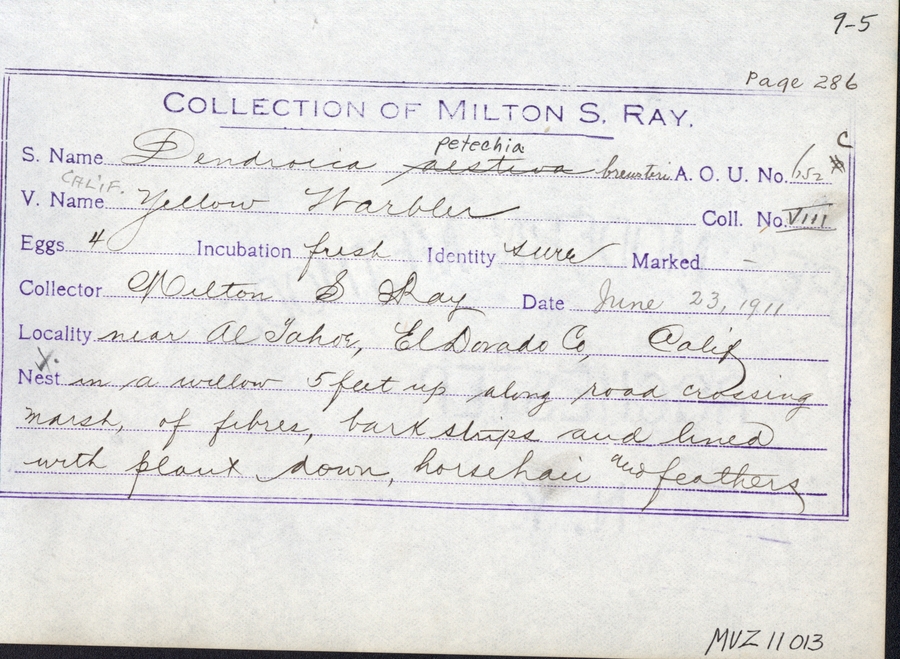 9-5
Page 286
COLLECTION OF MILTON S. RAY.
petechia
S. Name Dendroica aestiva brewsteri A. O. U. No. 652 c
CALIF.
V. Name Yellow Warbler Coll. No. VIII
Eggs 4 Incubation fresh Identity sure Marked –
Collector Milton S Ray Date June 23, 1911
Locality near Al Tahoe, El Dorado Co, Calif
X.
Nest in a willow 5 feet up along road crossing
marsh, of fibres, bark strips and lined
with plant down, horsehair and feathers
MVZ 11013